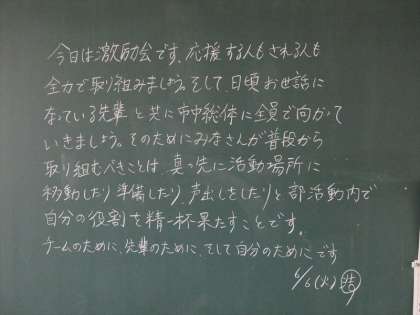 今日は激励会です。応援する人もされる人も
全力で取り組みましょう。そして、日頃お世話に
なっている先輩と共に市中総体に全員で向かって
いきましょう。そのためにみなさんが普段から
取り組むべきことは、真っ先に活動場所に
移動したり、準備したり、声出しをしたりと部活動内で
自分の役割を精一杯果たすことです。
チームのために、先輩のために、そして自分のためにです
6/6(火)